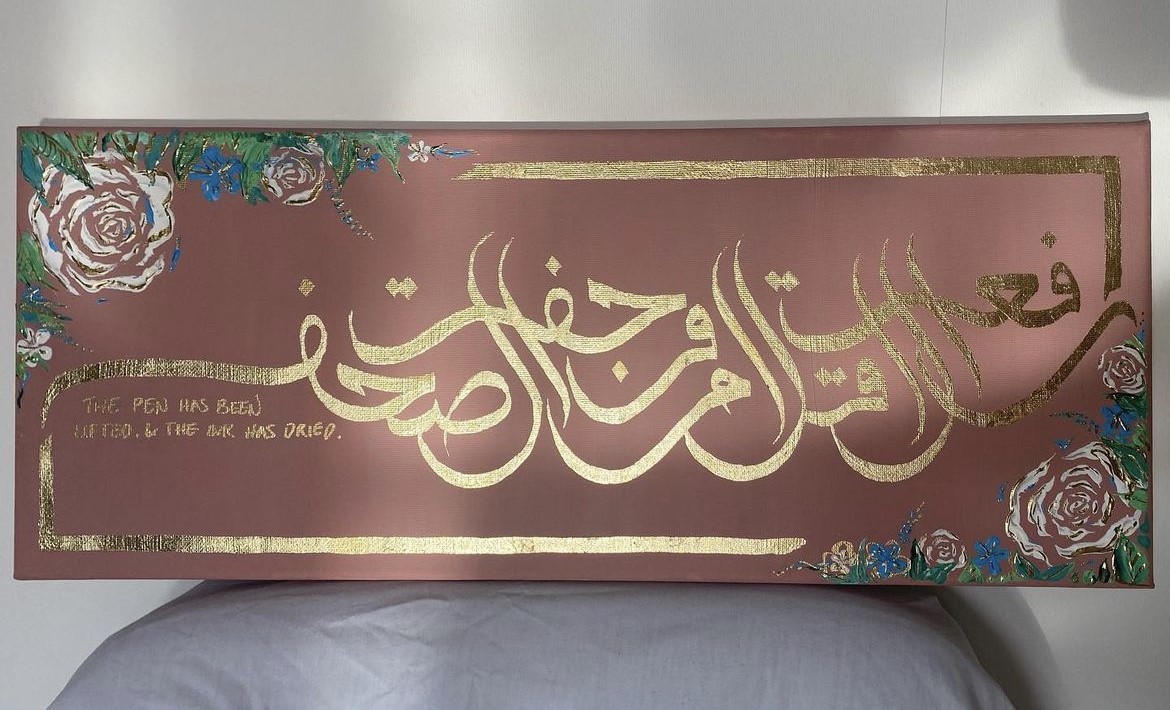 رفعت الاقلام وجفت الصحف
THE PEN HAS BEEN
LIFTED. & THE INK HAS DRIED.